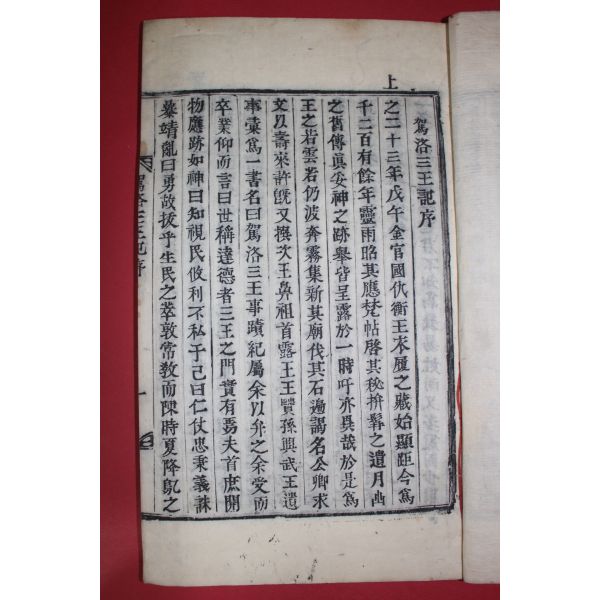 上
駕洛三王記序
之二十三年戊午金官國仇衡王衣履之藏始顯距今爲
千二百有餘年靈雨昭其應梵帖啓其秘拚髯之遺月
之舊傳眞妥神之跡擧皆呈露於一時吁亦異哉於是爲
王之若雲若仍波奔霧集新其廟伐其石遍謁名公卿求
文以壽來許旣又撰次王鼻祖首露王王賢孫興武王遺
事彙爲一書名曰駕洛三王事蹟紀屬余以弁之余受而
卒業仰而言曰世稱達德者三王之門實有焉夫首庶開
物應跡如神曰知視民攸利不私于己曰仁仗忠秉義誅
靖亂曰勇故拔乎生民之萃敦常敎而陳時夏降監之
駕洛三王記序
一